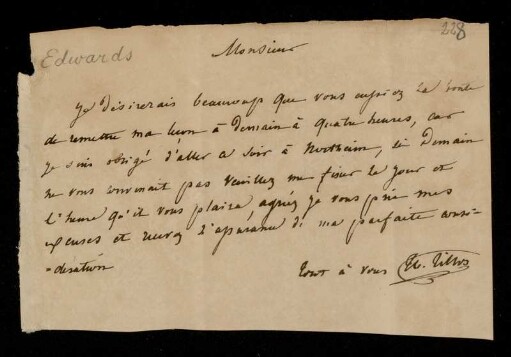 228
Edwards
Monsieur
Je désirerais beaucoup que vous eussiez la bonté
de remettre ma leçon à demain à quatre heures, car
je suis obligé d'aller ce soir à, si demain
ne vous convenait pas veuillez me fixer le jour et
l'heure qu'il vous plaira, agréez je vous prie mes
excuses et recevez l'assurance de ma parfaite consi-
-dération
tout à vous